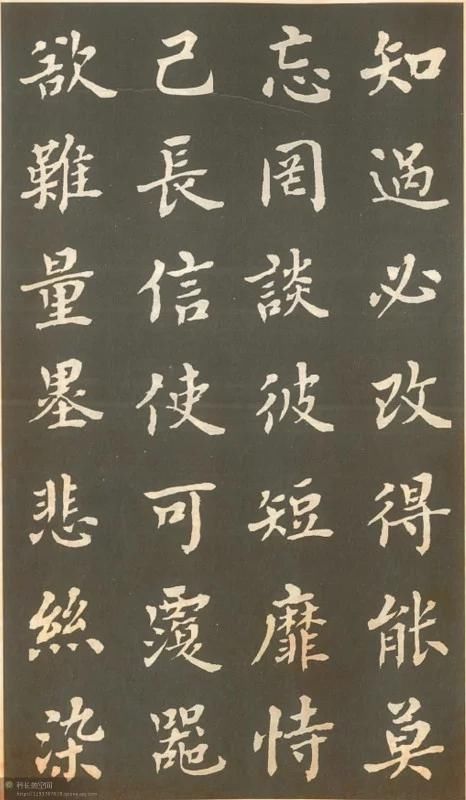 知過必改得能莫
忘罔談彼短靡恃
己長信使可覆器
欲難量墨悲絲染
科长的空间